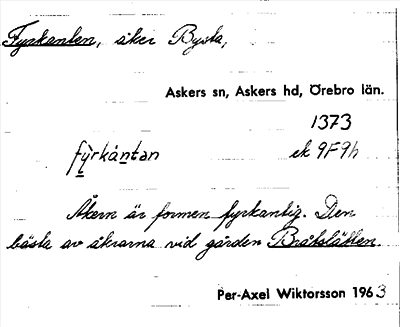 Fyrkanten, åker Bysta,
Askers sn, Askers hd, Örebro län.
1373
fỳ̱rkánt̠an ek 9F9h
Åkern är formen fyrkantig. Den
bästa av åkrarna vid gården Bråtslätten.
Per-Axel Wiktorsson 1963